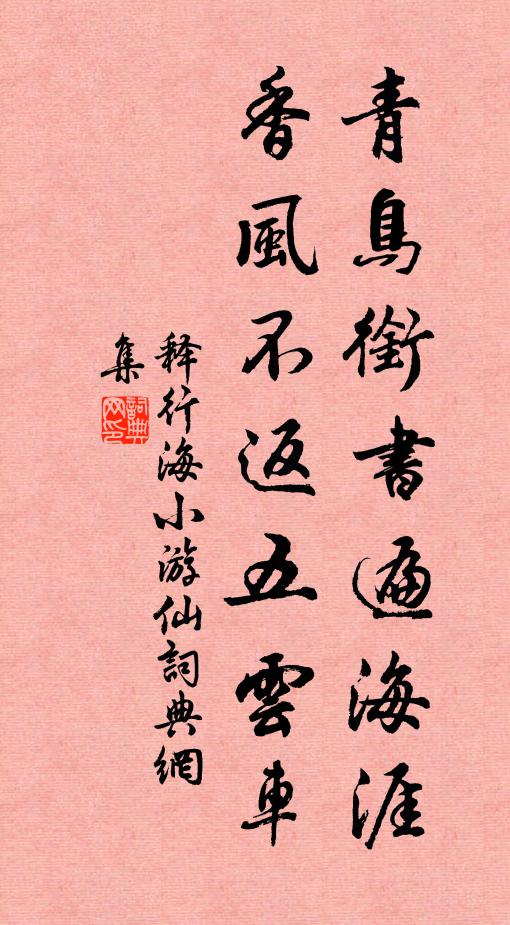 青鳥銜書遍海涯
香風不返五雲車
释行海小游仙詞典網
集
詞典網印